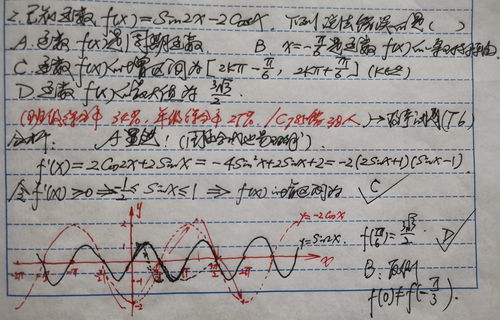 2. 已知函数 f(x)=Sin2x-2Cosx, 下列说法错误的是( )
A. 函数f(x)是周期函数 B. x=-π/6是函数f(x)的一条对称轴.
C. 函数f(x)的增区间为[2kπ-π/6, 2kπ+7π/6](k∈Z)
D. 函数f(x)的最大值为 3√3/2
34%, 25%, / C 38人) (T6)
分析: A显然:
f'(x)=2Cos2x+2Sinx=-4Sin²x+2Sinx+2=-2(2Sinx+1)(Sinx-1)
令f'(x)≥0 ⇒ -1/2≤Sinx≤1 ⇒ f(x)的增区间为 C
y
y=-2Cosx
y=Sin2x
x
f(7π/6)=3√3/2. D
B:
f(0)≠f(-π/3).